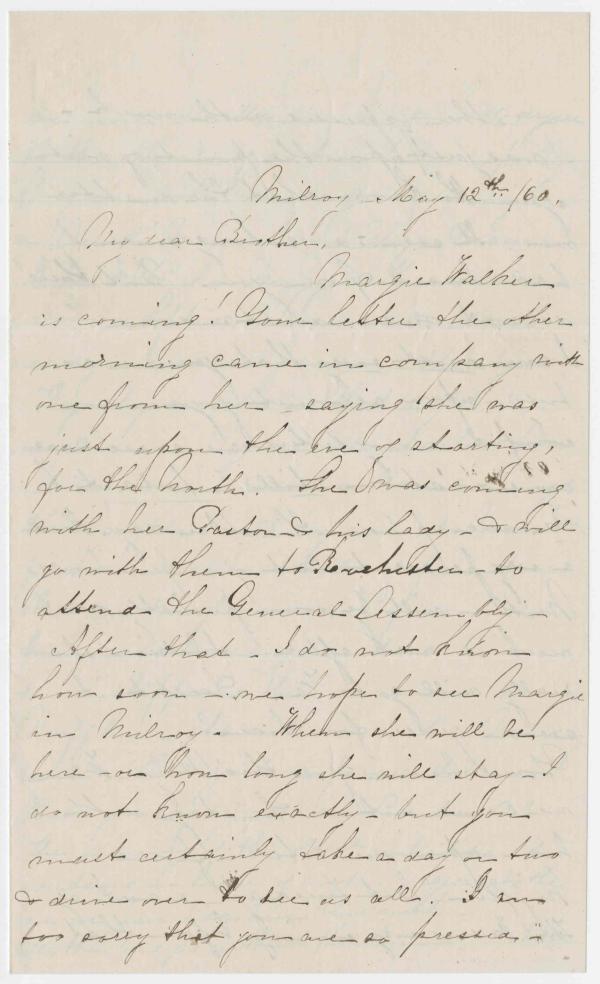 Milroy - May 12th /60.
My dear Brother,
Margie Walker
is coming! Your letter the other
morning came in company with
one from her - saying she was
just upon the eve of starting,
for the North. She was coming
with her Pastor & his lady - & will
go with them to Rochester - to
attend the General Assembly -
After that - I do not know
how soon - we hope to see Margie
in Milroy. When she will be
here - or how long she will stay - I
do not know exactly - but you
must certainly take a day or two
& drive over to see us all. I am
too sorry that you are so pressed -